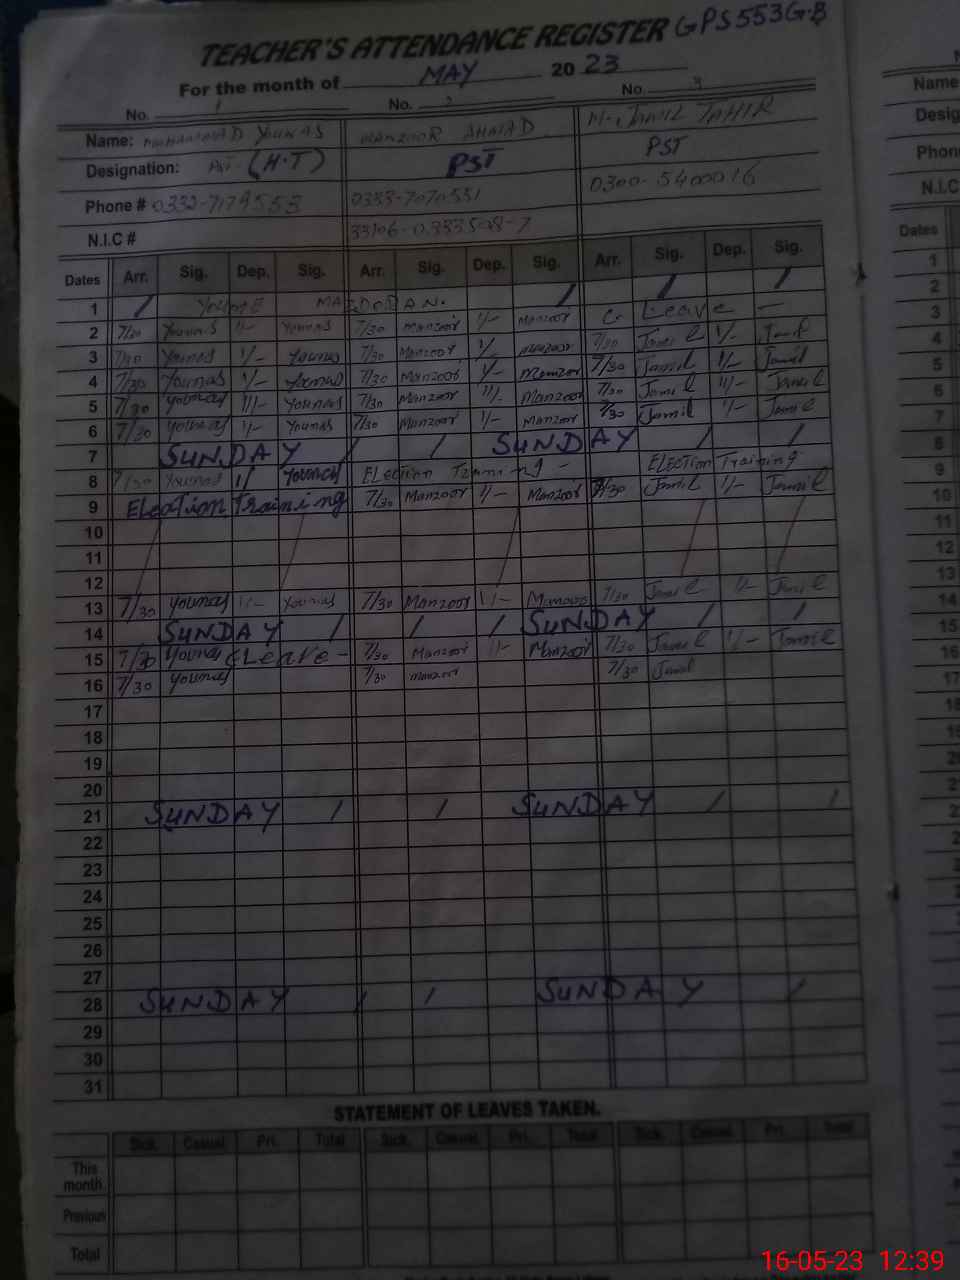 TEACHER'S ATTENDANCE REGISTER GPS 553 G.B
For the month of MAY 20 23
No. 1 No. 2 No. 3
Name: MUHAMMAD YOUNAS MANZOOR AHMAD M. JAMIL TAHIR
Designation: PST (H.T) PST PST
Phone # 0332-7179553 0333-7070551 0300-5400016
N.I.C # 33106-0383508-7
Dates Arr. Sig. Dep. Sig. Arr. Sig. Dep. Sig. Arr. Sig. Dep. Sig.
1 /
2 7/30 Younas 1/- Younas 7/30 Manzoor 1/- Manzoor C. Leave
3 7/30 Younas 1/- Younas 7/30 Manzoor 1/- Manzoor 7/30 Jamil 1/- Jamil
4 7/30 Younas 1/- Younas 7/30 Manzoor 1/- Manzoor 7/30 Jamil 1/- Jamil
5 7/30 Younas 11/- Younas 7/30 Manzoor 11/- Manzoor 7/30 Jamil 11/- Jamil
6 7/30 Younas 1/- Younas 7/30 Manzoor 1/- Manzoor 7/30 Jamil 1/- Jamil
7 SUNDAY / / SUNDAY / /
8 7/30 Younas 1/ Younas Election Training - Election Training
9 Election Training 7/30 Manzoor 1/- Manzoor 7/30 Jamil 1/- Jamil
10
11
12
13 7/30 Younas 1/- Younas 7/30 Manzoor 1/- Manzoor 7/30 Jamil 1/- Jamil
14 SUNDAY / / / SUNDAY / /
15 7/30 Younas C Leave - 7/30 Manzoor 11/- Manzoor 7/30 Jamil 1/- Jamil
16 7/30 Younas 7/30 Manzoor 7/30 Jamil
17
18
19
20
21 SUNDAY / / SUNDAY / /
22
23
24
25
26
27
28 SUNDAY / / SUNDAY /
29
30
31
STATEMENT OF LEAVES TAKEN.
Sick. Casual. Pri. Total Sick. Casual. Pri. Total Sick. Casual. Pri. Total
This month
Previous
Total
Name
Desig
Phon
N.I.C
Dates
1
2
3
4
5
6
7
8
9
10
11
12
13
14
15
16
17
16-05-23 12:39